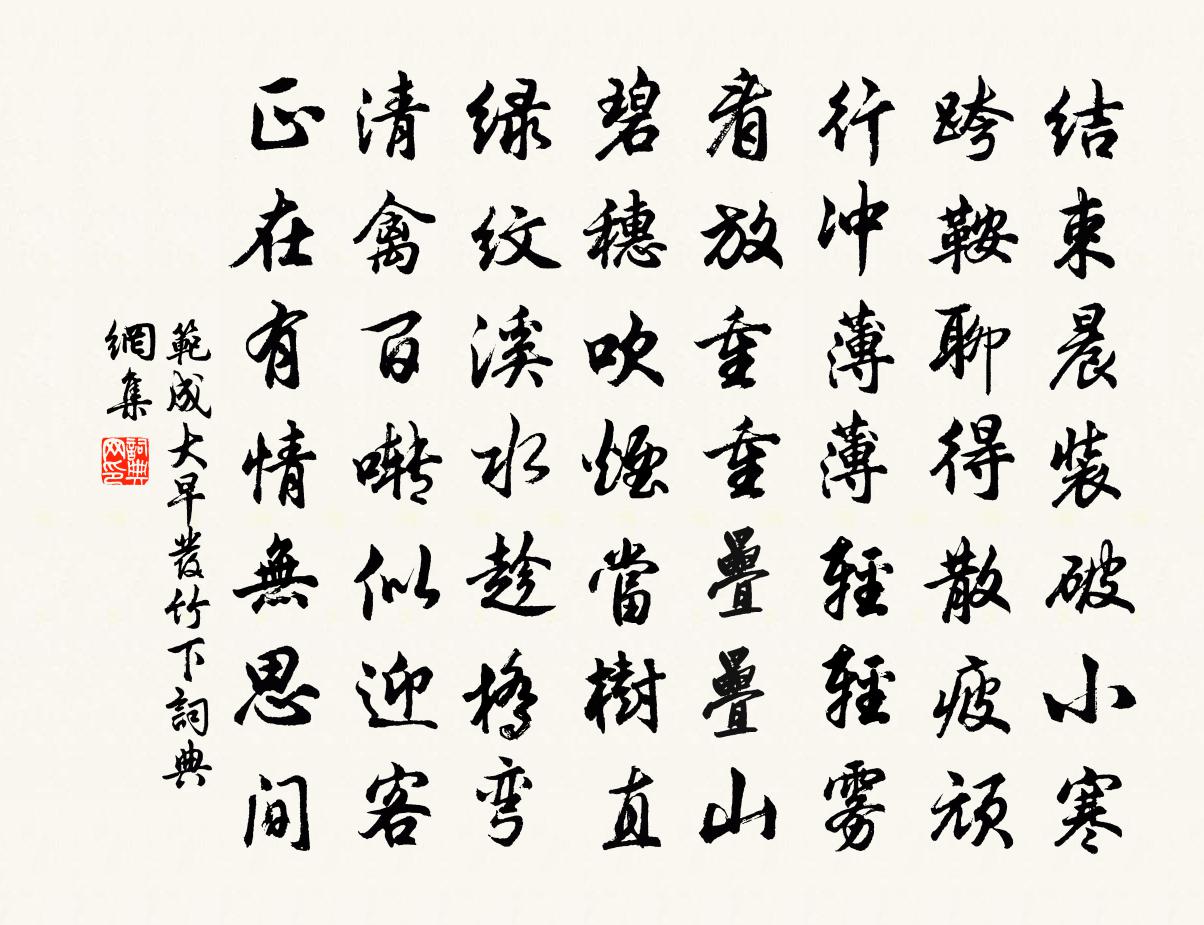 结束晨装破小寒
跨鞍聊得散疲顽
行冲薄薄轻轻雾
看放重重疊疊山
碧穗吹煙當樹直
绿纹溪水趁橋弯
清禽百啭似迎客
正在有情無思间
範成大早發竹下詞典
網集
詞典网印